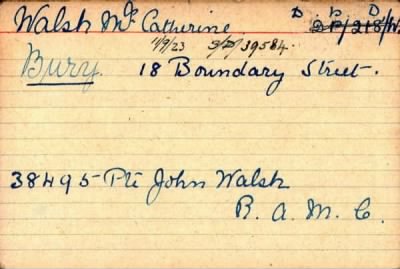 Walsh Mrs Catherine D B D
DP/218/W.
11/9/23 S/D/39584.
Bury. 18 Boundary Street.
38495 Pte John Walsh
R. A. M. C.